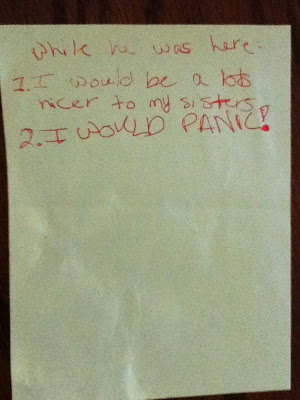 While he was here:
1. I would be a lots
nicer to my sisters
2. I WOULD PANIC!